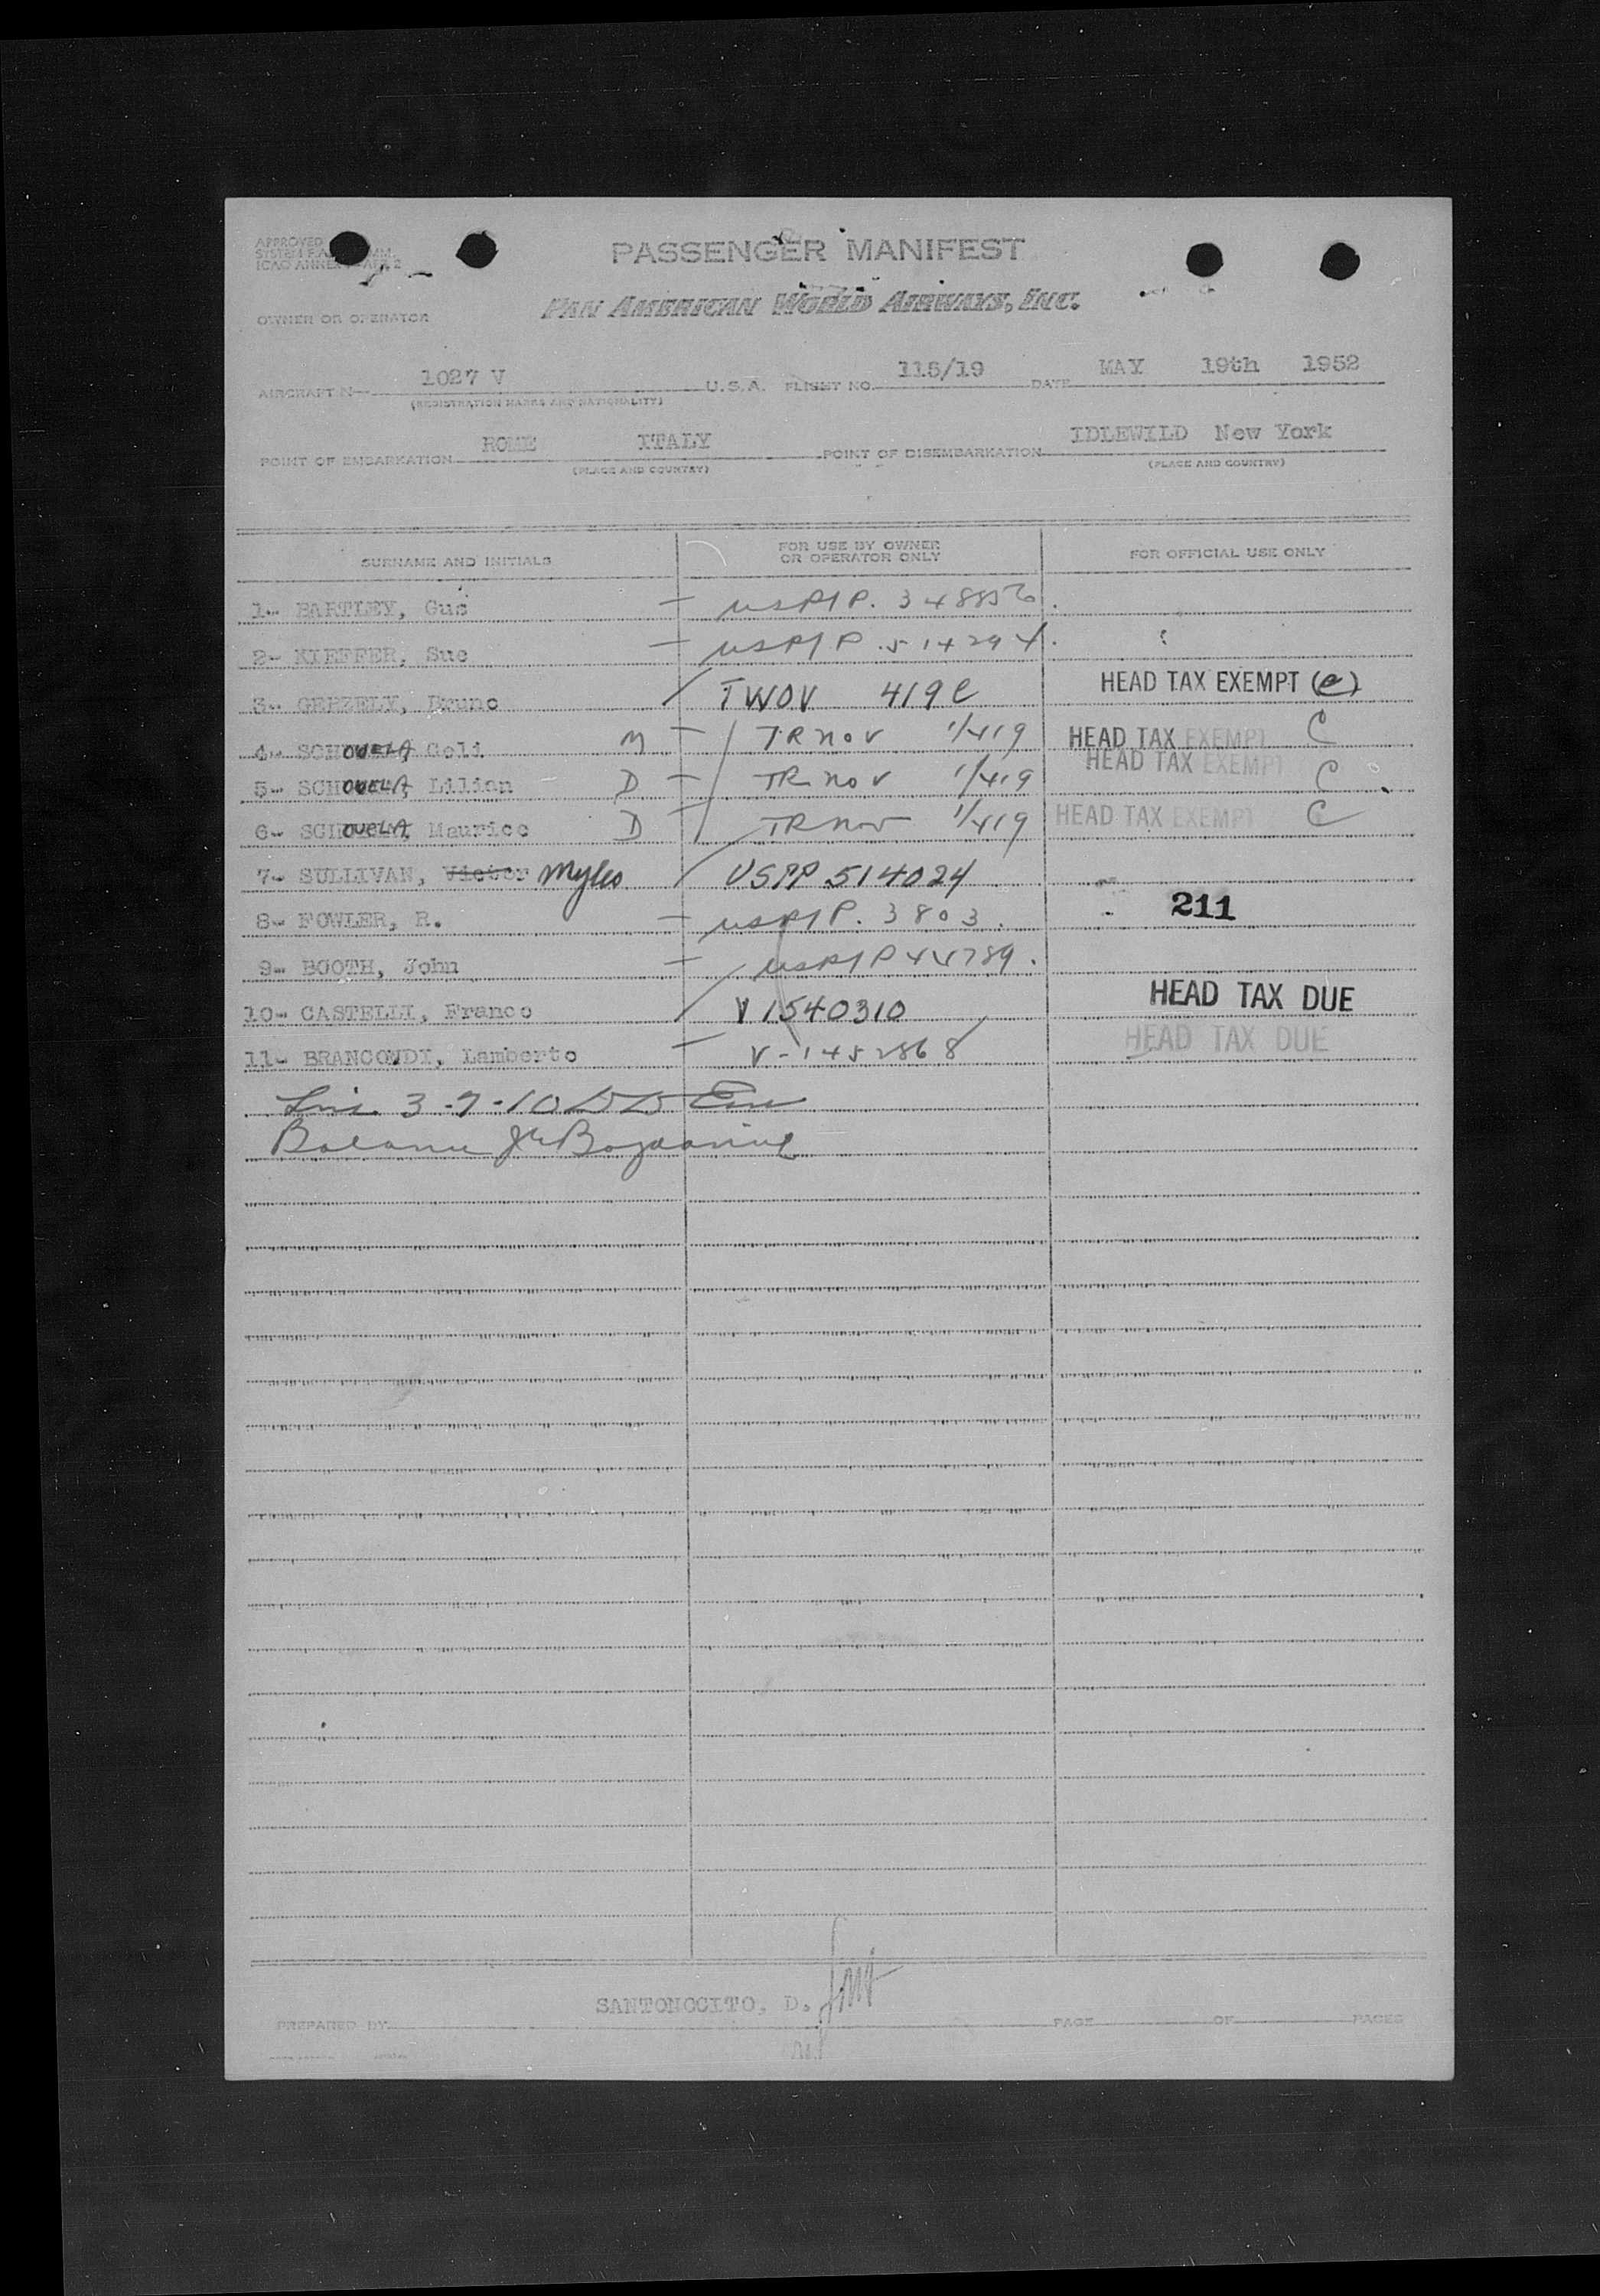 PASSENGER MANIFEST
APPROVED
ICAO ANNEX
PAN AMERICAN WORLD AIRWAYS, INC.
OWNER OR OPERATOR
AIRCRAFT N- 1027 V U.S.A. FLIGHT NO. 115/19 DATE MAY 19th 1952
(REGISTRATION MARKS AND NATIONALITY)
POINT OF EMBARKATION ROME ITALY POINT OF DISEMBARKATION IDLEWILD New York
(PLACE AND COUNTRY) (PLACE AND COUNTRY)
SURNAME AND INITIALS FOR USE BY OWNER OR OPERATOR ONLY FOR OFFICIAL USE ONLY
1- BARTLEY, Gus
2- KIEFFER, Sue
3- Bruno TWOV 419 C HEAD TAX EXEMPT (c)
4- SCHOUELA M 1/419 HEAD TAX EXEMPT C
5- SCHOUELA, Lilian D 1/419 HEAD TAX EXEMPT C
6- SCHOUELA, Maurice D 1/419 HEAD TAX EXEMPT C
7- SULLIVAN, Victor Myles USPP 514024
8- FOWLER, R. 3803. 211
9- BOOTH, John
10- CASTELLI, Franco V 1540310 HEAD TAX DUE
11- BRANCONDI, Lamberto V-1452868 HEAD TAX DUE
3-7-10
SANTONOCITO, D.
PREPARED BY PAGE OF PAGES